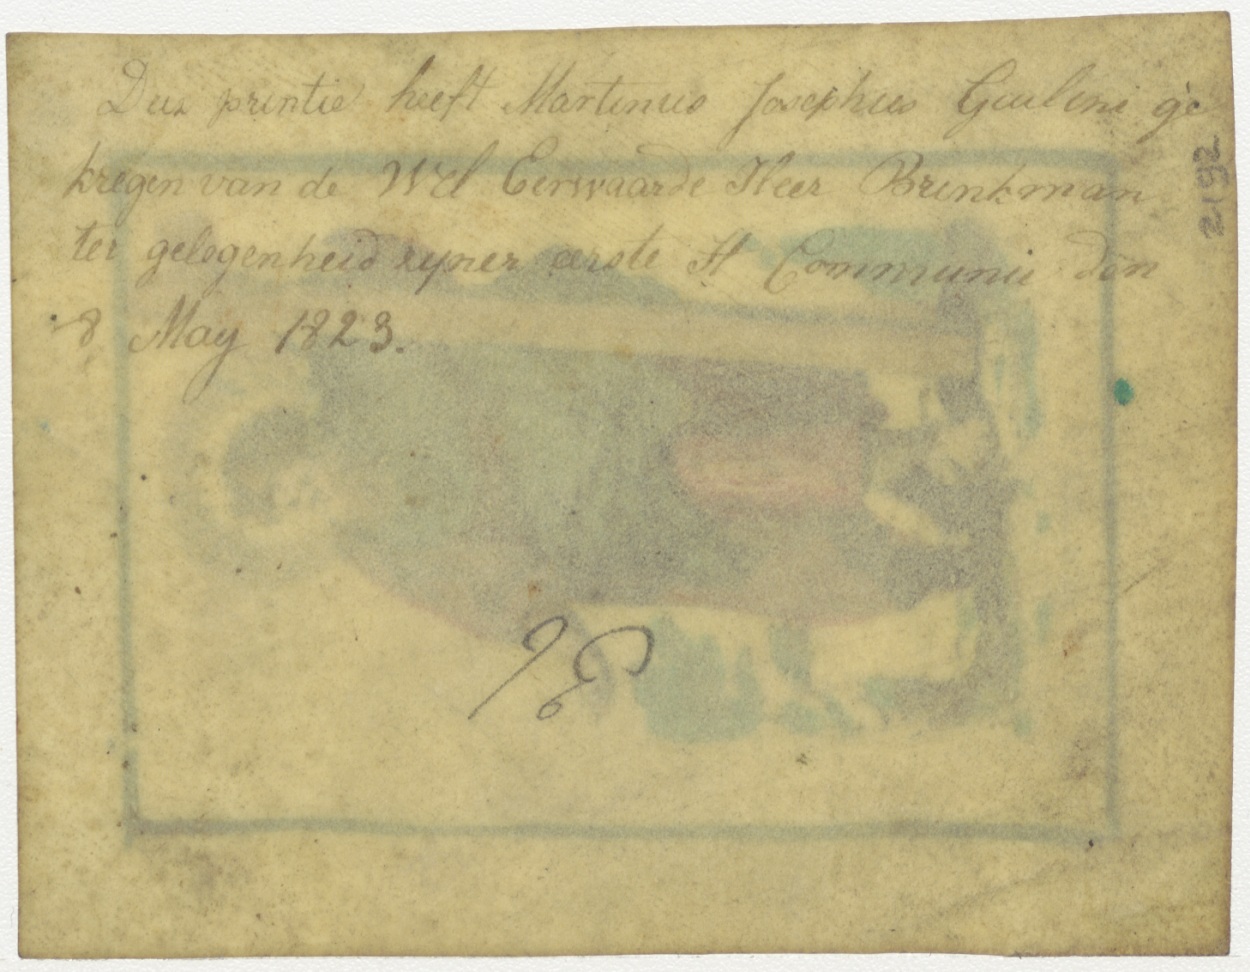 Deez printie heeft Martinus Josephus Giulini ge
kregen van de Wel Eerwaarde Heer Brinkman
ter gelegenheid zyner eerste H Communie den
8 May 1823.
2192